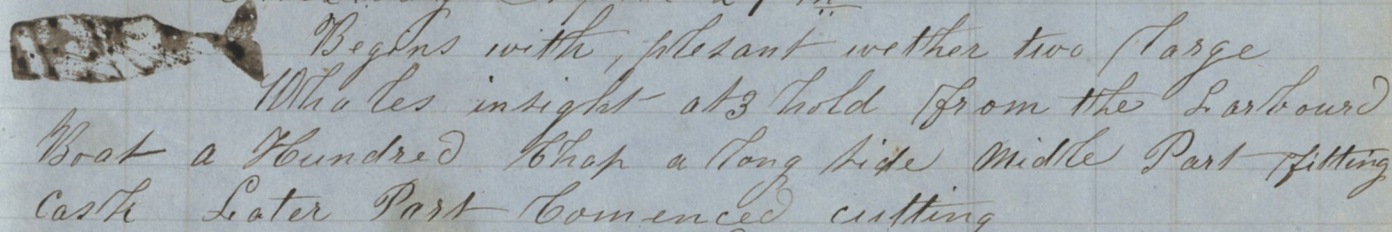 Begins with, plesant wether two large
Whales insight at 3 hold from the Larbourd
Boat a Hundred Chap a long side Midle Part fitting
Cask Later Part Comenced cutting